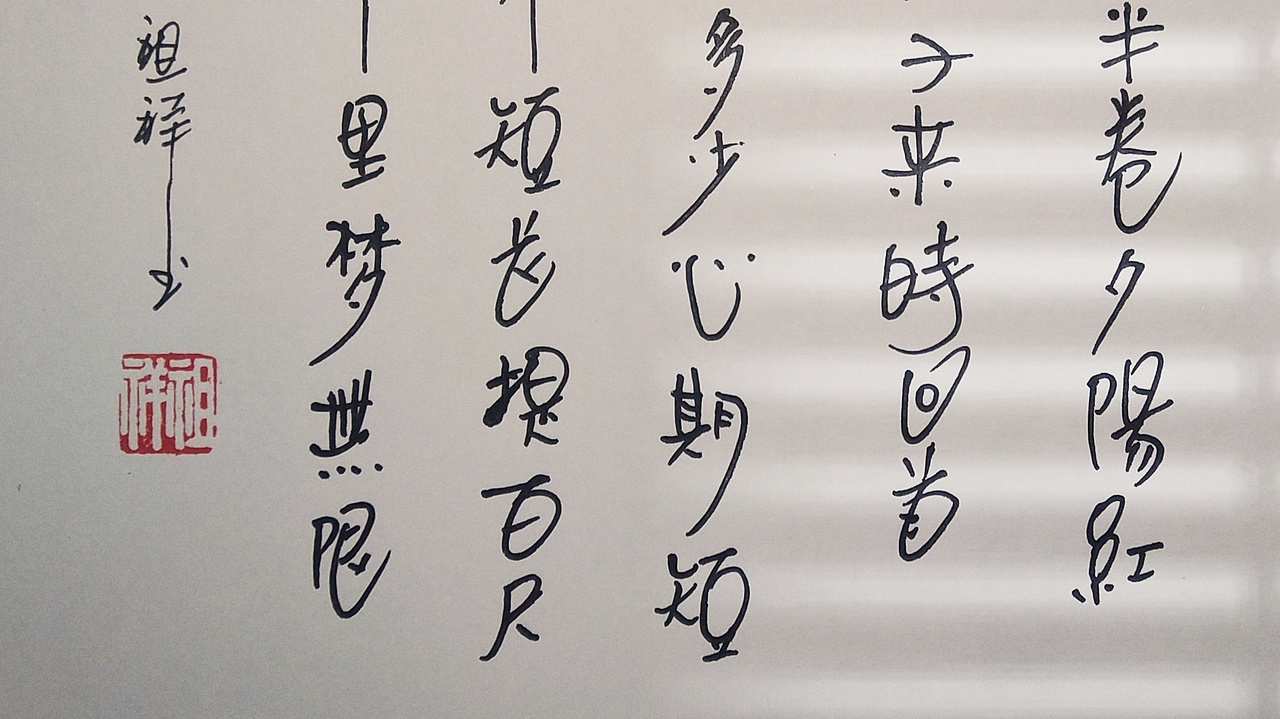 半卷夕陽紅
子来時回首
多少心期短
短长百尺
里梦無限
祖祥书
祖祥